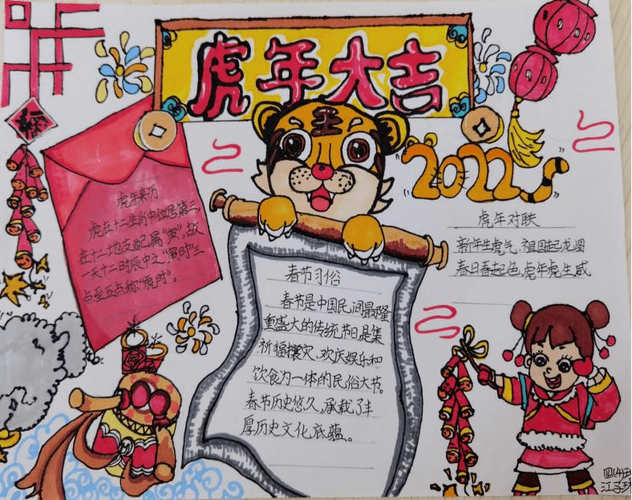 虎年大吉
2022
虎年来历
虎在十二生肖中位居第三
在十二地支配属“寅”,故
一天十二时辰中之“寅时”三
点至五点称“虎时”。
虎年对联
新年生虎气 祖国起龙图
春日喜起色,虎年虎生威
春节习俗
春节是中国民间最隆
重盛大的传统节日是集
祈福攘灾、欢庆娱乐和
饮食为一体的民俗大节。
春节历史悠久,承载了丰
厚历史文化底蕴。